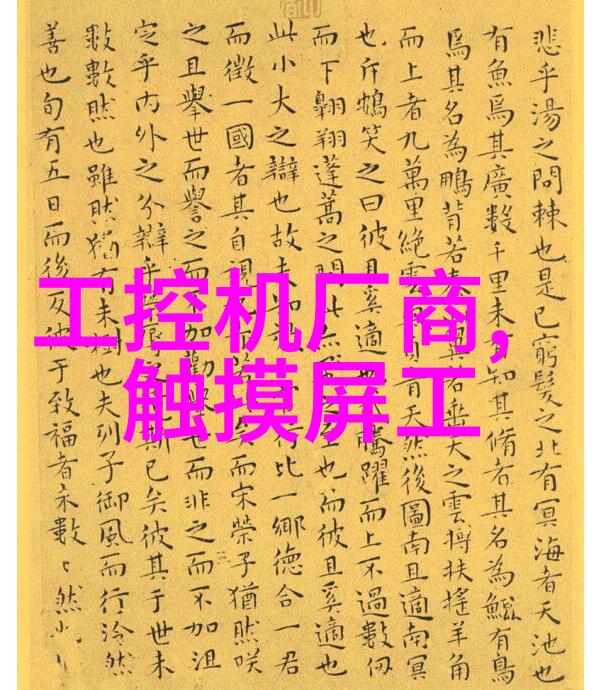 悲乎湯之問棘也是已窮髮之北有冥海者天池也
有魚焉其廣數千里未知其脩者其名為鯤有鳥
焉其名為鵬背若若垂天之雲摶扶搖羊角
而上者九萬里絕雲負青天然後圖南且適南冥
也斥鴳笑之曰彼且奚適也騰躍而上不過數仞
而下翱翔蓬蒿之間此之至也而彼且奚適也
此小大之辯也故夫知行比一鄉德合一君
而徵一國者其自視矣而宋榮子猶然咲
之且舉世而譽之而不加勸世而非之而不加沮
定乎內外之分辯乎斯已矣彼其于世未
數數然也雖然猶有未樹也夫列子御風而行泠然
善也旬有五日而後反彼于致福者未數〻然也
工控机厂商,
触摸屏工